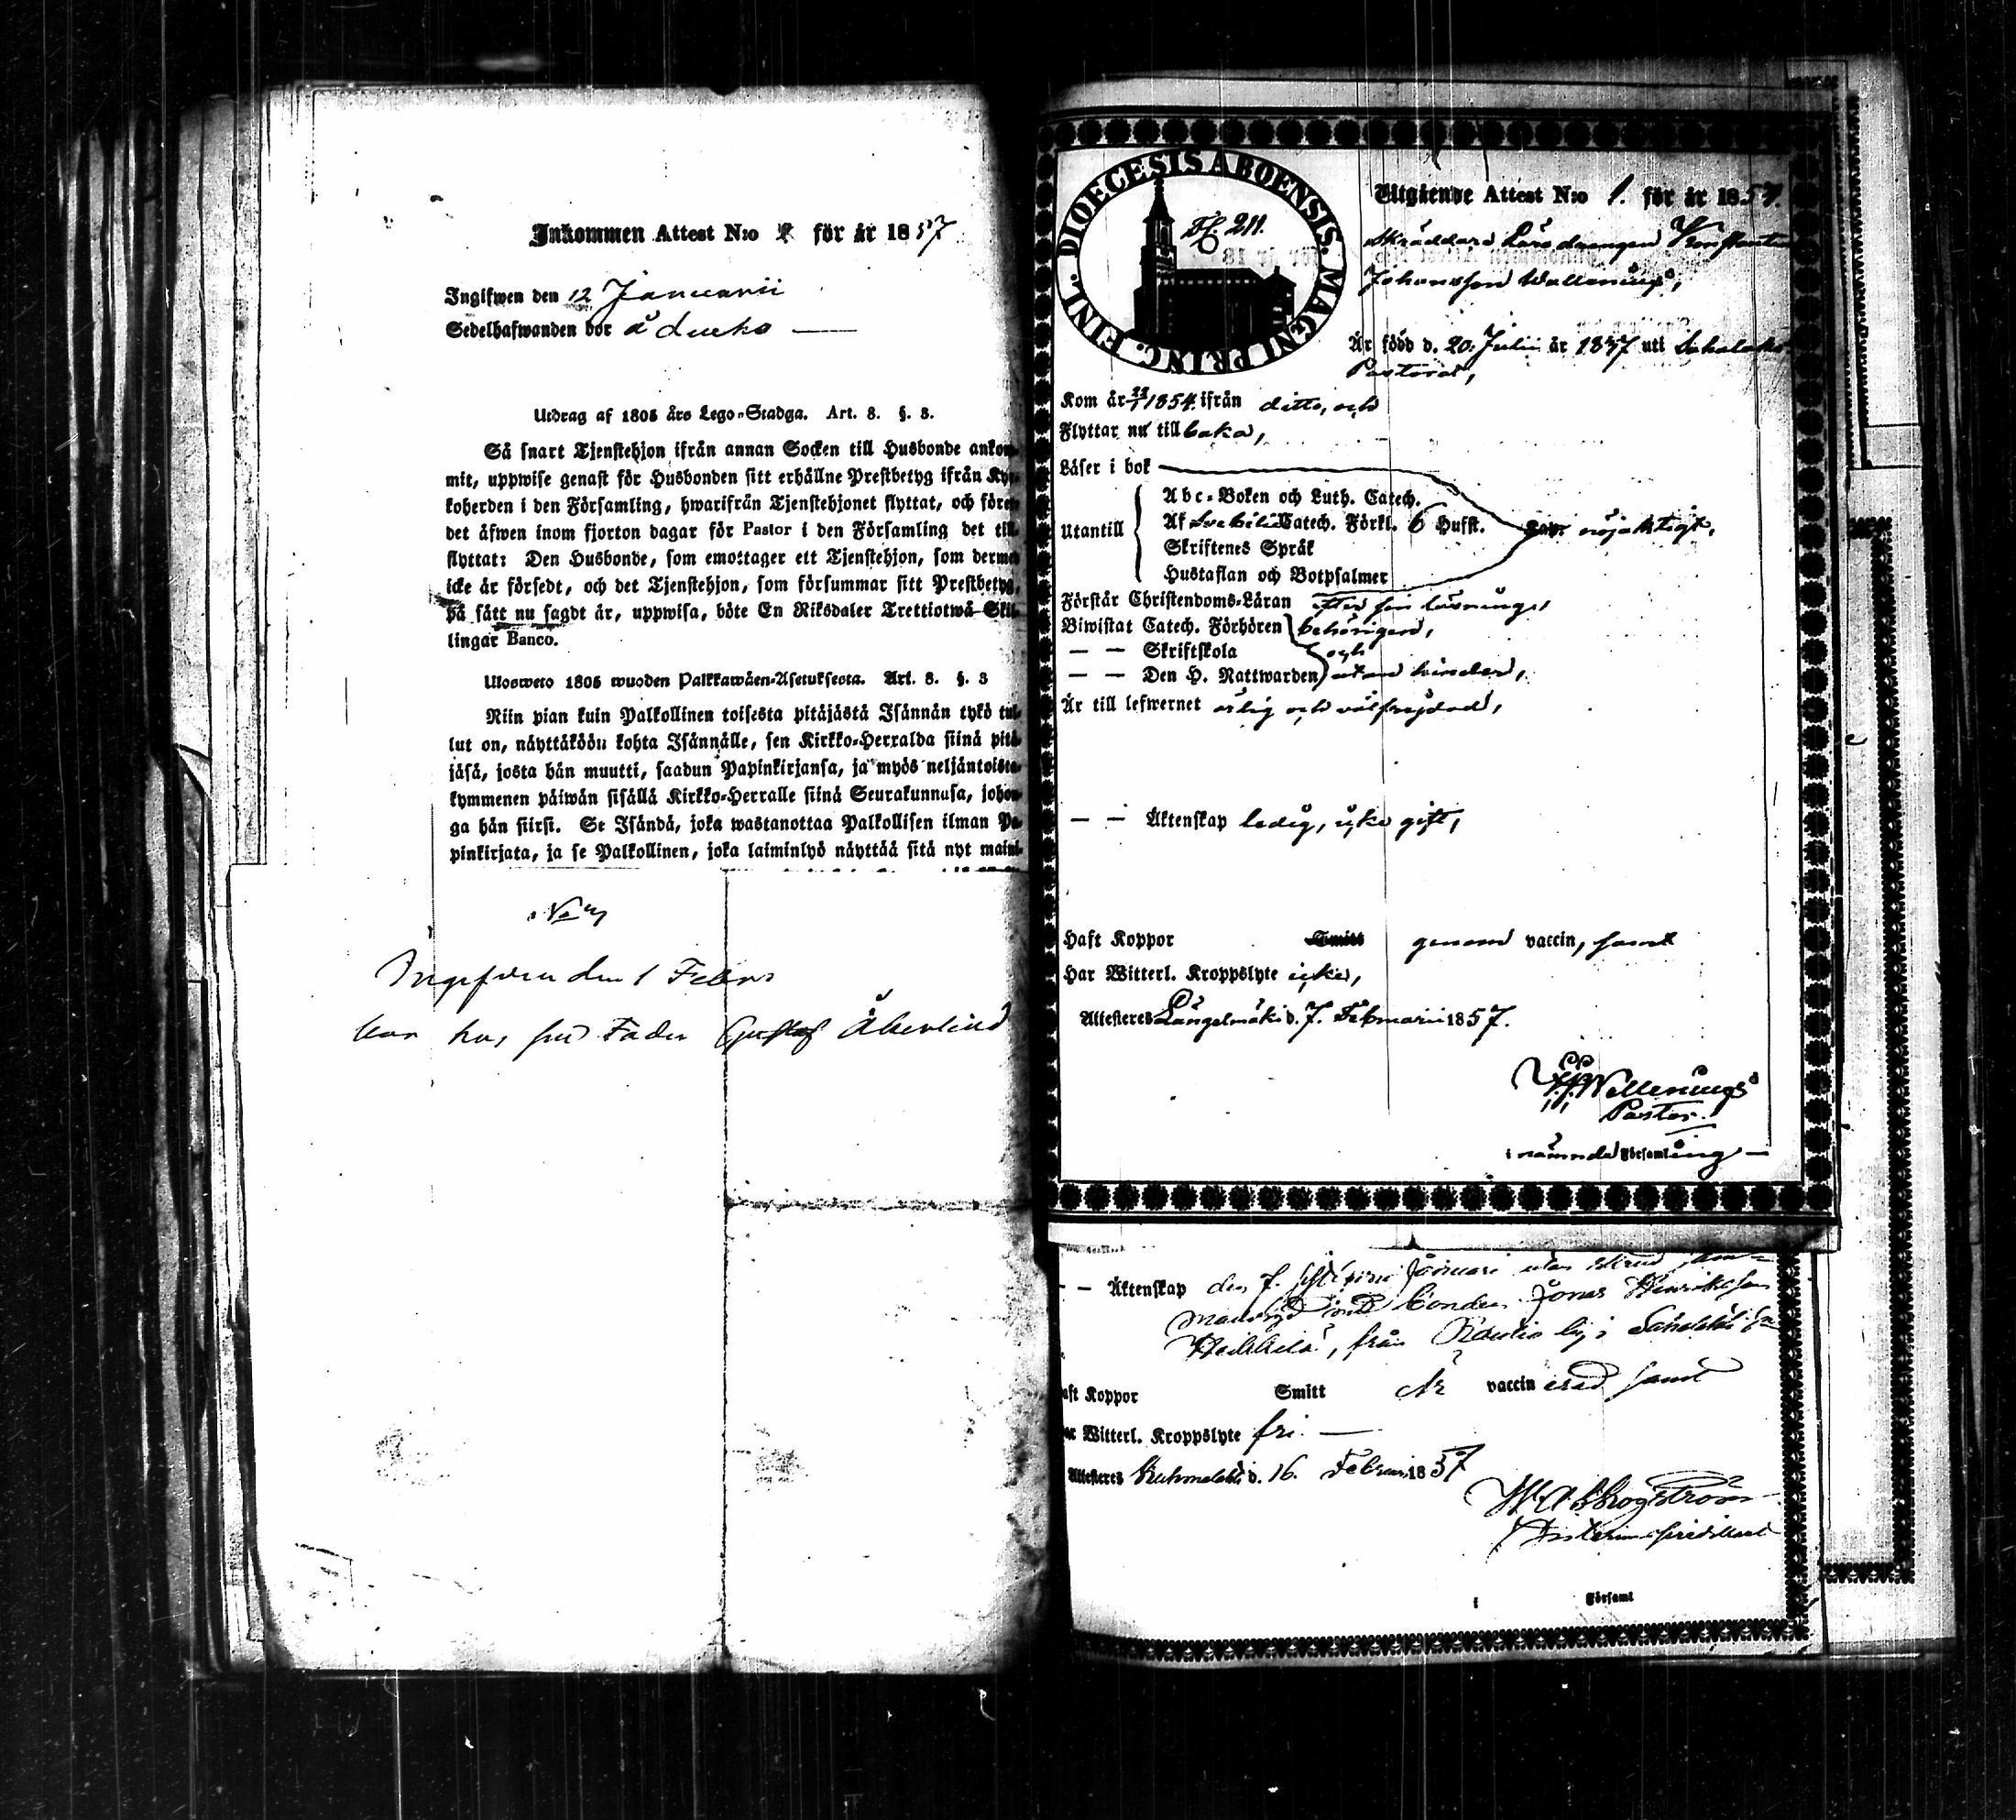 Inkommen Attest N:o 2 för år 1857
Ingifwen den 12 Januarii
Sedelhafwanden bor å
Utdrag af 1805 års Lego-Stadga. Art. 8. §. 3.
Så snart Tjenstehjon ifrån annan Socken till Husbonde ankom-
mit, uppwise genast för Husbonden sitt erhållne Prestbetyg ifrån Kyr-
koherden i den Församling, hwarifrån Tjenstehjonet flyttat, och före
det äfwen inom fjorton dagar för Pastor i den Församling det till
flyttat: Den Husbonde, som emottager ett Tjenstehjon, som dermed
icke är försedt, och det Tjenstehjon, som försummar sitt Prestbetyg,
på sätt nu sagdt är, uppwisa, böte En Riksdaler Trettiotwå Skil-
lingar Banco.
Ulosweto 1805 wuoden Palkkawäen-Asetuksesta. Art. 8. §. 3
Niin pian kuin Palkollinen toisesta pitäjästä Isännän tykö tul-
lut on, näyttäköön kohta Isännälle, sen Kirkko-Herralda siinä pitä-
jäsä, josta hän muutti, saadun Papinkirjansa, ja myös neljäntoista-
kymmenen päiwän sisällä Kirkko-Herralle siinä Seurakunnasa, johon-
ga hän siirsi. Se Isändä, joka wastanottaa Palkollisen ilman Pa-
pinkirjata, ja se Palkollinen, joka laiminlyö näyttää sitä nyt maini-
Ingifven den 1 Febr
bor hos sin Fader Gustaf Åkerlind
DIOECESIS ABOENSIS. MAGNI PRINC. FINL.
Utgående Attest N:o 1. för år 1857.
Skräddare Läro drengen Konstantin
Johansson Wallenius,
Är född d. 20 Julii år 1837 uti Sahalaks
Pastorat,
Kom år 1854. ifrån ditto, och
Flyttar nu till baka,
Läser i bok
Abc-Boken och Luth. Catech.
Utantill Af Svebilii Catech. Förkl. 6 Hufst. nöjaktigt.
Skriftenes Språk
Hustaflan och Botpsalmer
Förstår Christendoms-Läran efter sin läsning,
Biwistat Catech. Förhören behörigen,
— — Skriftskola och
— — Den H. Nattwarden utan hinder,
Är till lefwernet ärlig och välfrejdad,
— — Äktenskap ledig, icke gift,
Haft Koppor Smitt genom vaccin, samt
Har Witterl. Kroppslyte icke,
Attesteres Längelmäki d. 7. Februarii 1857.
Wallenius
Pastor.
i nämnda Församling —
— Äktenskap den 7. Januari utan
med bonden Jonas Henriksson
Heikkilä, från Rautio by i
aft Koppor Smitt Är vaccin erad samt
ar Witterl. Kroppslyte fri. —
Attesteres Kuhmalahti d. 16. Februari 1857
Skogström
i Församl